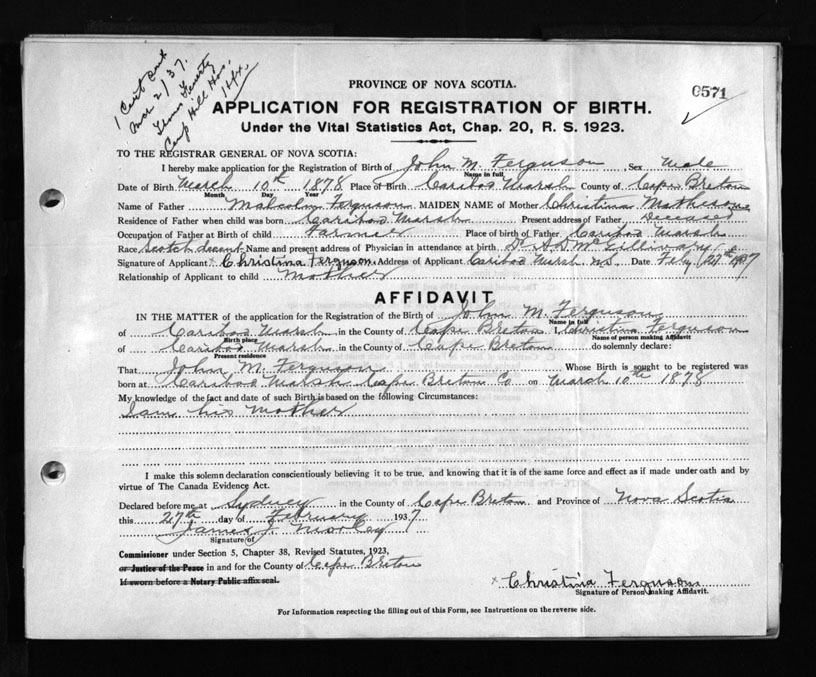 1 Cert out
Mar 2/37.
Camp Hill Hos.
Hfx.
0571
PROVINCE OF NOVA SCOTIA.
APPLICATION FOR REGISTRATION OF BIRTH.
Under the Vital Statistics Act, Chap. 20, R. S. 1923.
TO THE REGISTRAR GENERAL OF NOVA SCOTIA:
I hereby make application for the Registration of Birth of John M. Ferguson, Sex Male
Name in full
Date of Birth March 10th 1878 Place of Birth Cariboo Marsh County of Cape Breton
Month Day Year
Name of Father Malcolm Ferguson MAIDEN NAME of Mother Christina Matheson
Residence of Father when child was born Cariboo Marsh Present address of Father Deceased
Occupation of Father at Birth of child Farmer Place of birth of Father Caribou Marsh
Race Scotch decent Name and present address of Physician in attendance at birth Dr. McGillivary
Signature of Applicant Christina Ferguson. Address of Applicant Caribou Marsh N.S. Date Feby 27th 1937
Relationship of Applicant to child Mother
AFFIDAVIT
IN THE MATTER of the application for the Registration of the Birth of John M. Ferguson
Name in full
of Caribou Marsh in the County of Cape Breton I, Christina Ferguson
Birth place Name of person making Affidavit
of Caribou Marsh in the County of Cape Breton do solemnly declare:
Present residence
That John M. Ferguson Whose Birth is sought to be registered was
born at Cariboo Marsh Cape Breton Co on March 10th 1878
My knowledge of the fact and date of such Birth is based on the following Circumstances:
I am his mother
I make this solemn declaration conscientiously believing it to be true, and knowing that it is of the same force and effect as if made under oath and by
virtue of The Canada Evidence Act.
Declared before me at Sydney in the County of Cape Breton and Province of Nova Scotia
this 27th day of February 1937
James J. Morley
Signature of
Commissioner under Section 5, Chapter 38, Revised Statutes, 1923,
or Justice of the Peace in and for the County of Cape Breton
If sworn before a Notary Public affix seal.
x Christina Ferguson
Signature of Person making Affidavit.
For Information respecting the filling out of this Form, see Instructions on the reverse side.